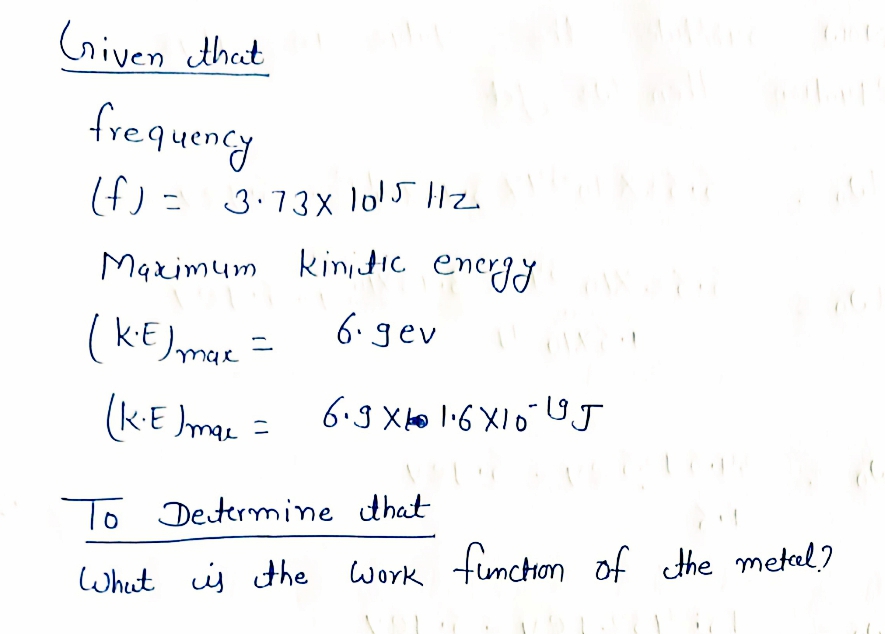 Given that
frequency
(f) = 3.73 x 10^15 Hz
Maximum kinitic energy
(K.E)max = 6.9 ev
(K.E)max = 6.9 x 1.6 x 10^-19 J
To Determine that
What is the work function of the metal?